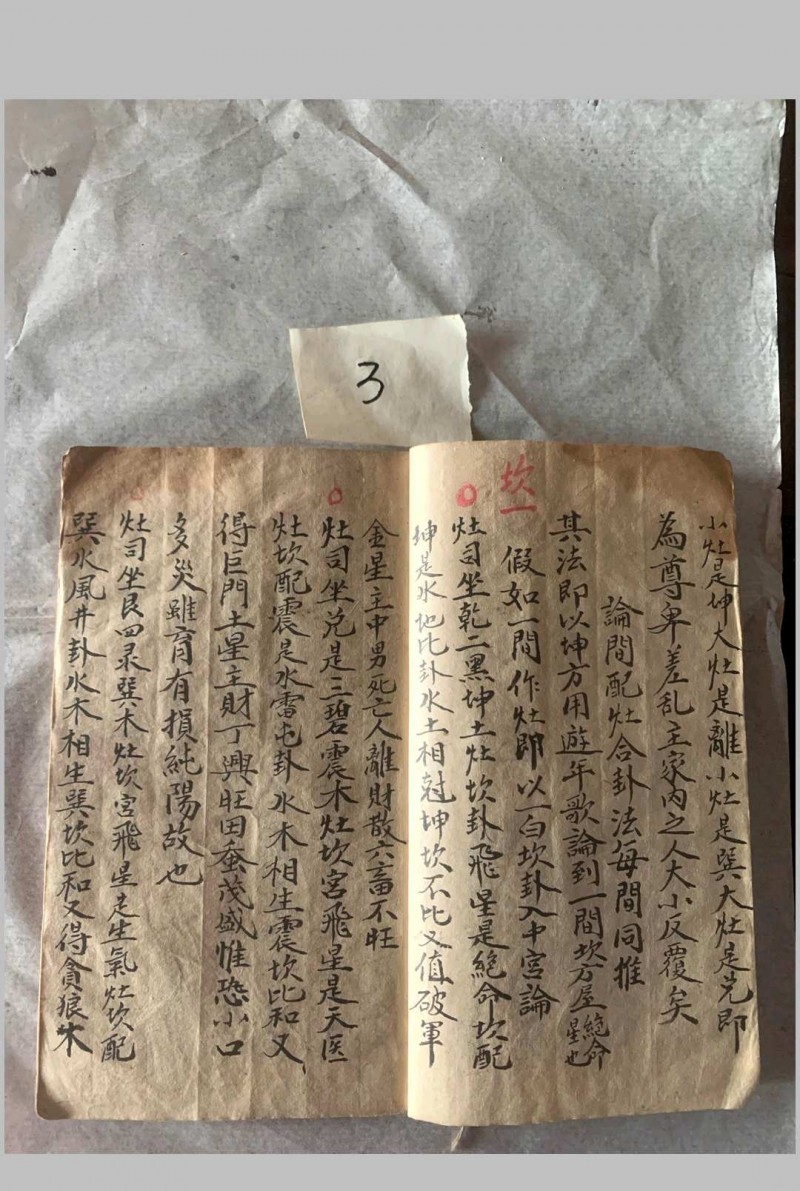 3
小灶是坤大灶是離小灶是巽大灶是兑即
為尊卑差乱主家内之人大小反覆矣
論間配灶合卦法每間同推
其法即以坤方用遊年歌論到一間坎方屋絶命星也
坎一
假如一間作灶即以一白坎卦入中宮論
灶司坐乾二黑坤土灶坎卦飛星是絶命坎配
坤是水地比卦水土相尅坤坎不比又值破軍
金星主中男死亡人離財散六畜不旺
灶司坐兑是三碧震木灶坎宮飛星是天医
灶坎配震是水雷屯卦水木相生震坎比和又
得巨門土星主財丁興旺田蚕茂盛惟恐小口
多災雖育有損純陽故也
灶司坐艮四录巽木灶坎宮飛星走生氣灶坎配
巽水風井卦水木相生巽坎比和又得貪狼木